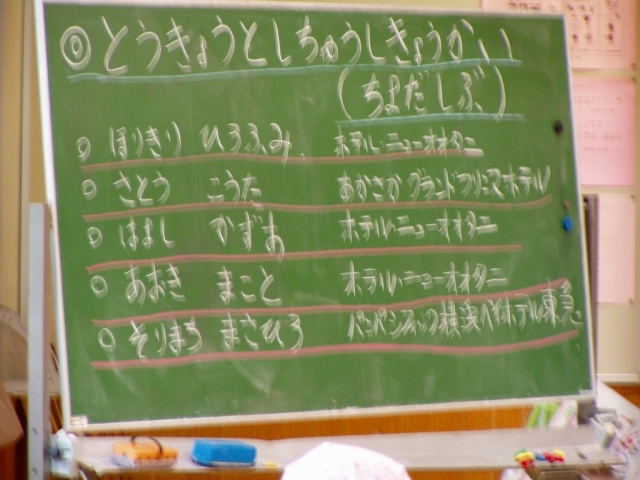 ◎とうきょうとしちゅうしきょうかい
(ちよだしぶ)
○ ほりきり ひろふみ ホテル・ニューオオタニ
○ さとう こうた あかさかグランドプリンスホテル
○ はまし かずお ホテル・ニューオオタニ
○ あおき まこと ホテル・ニューオオタニ
○ そりまち まさひろ パンパシフィック横浜ベイホテル東急